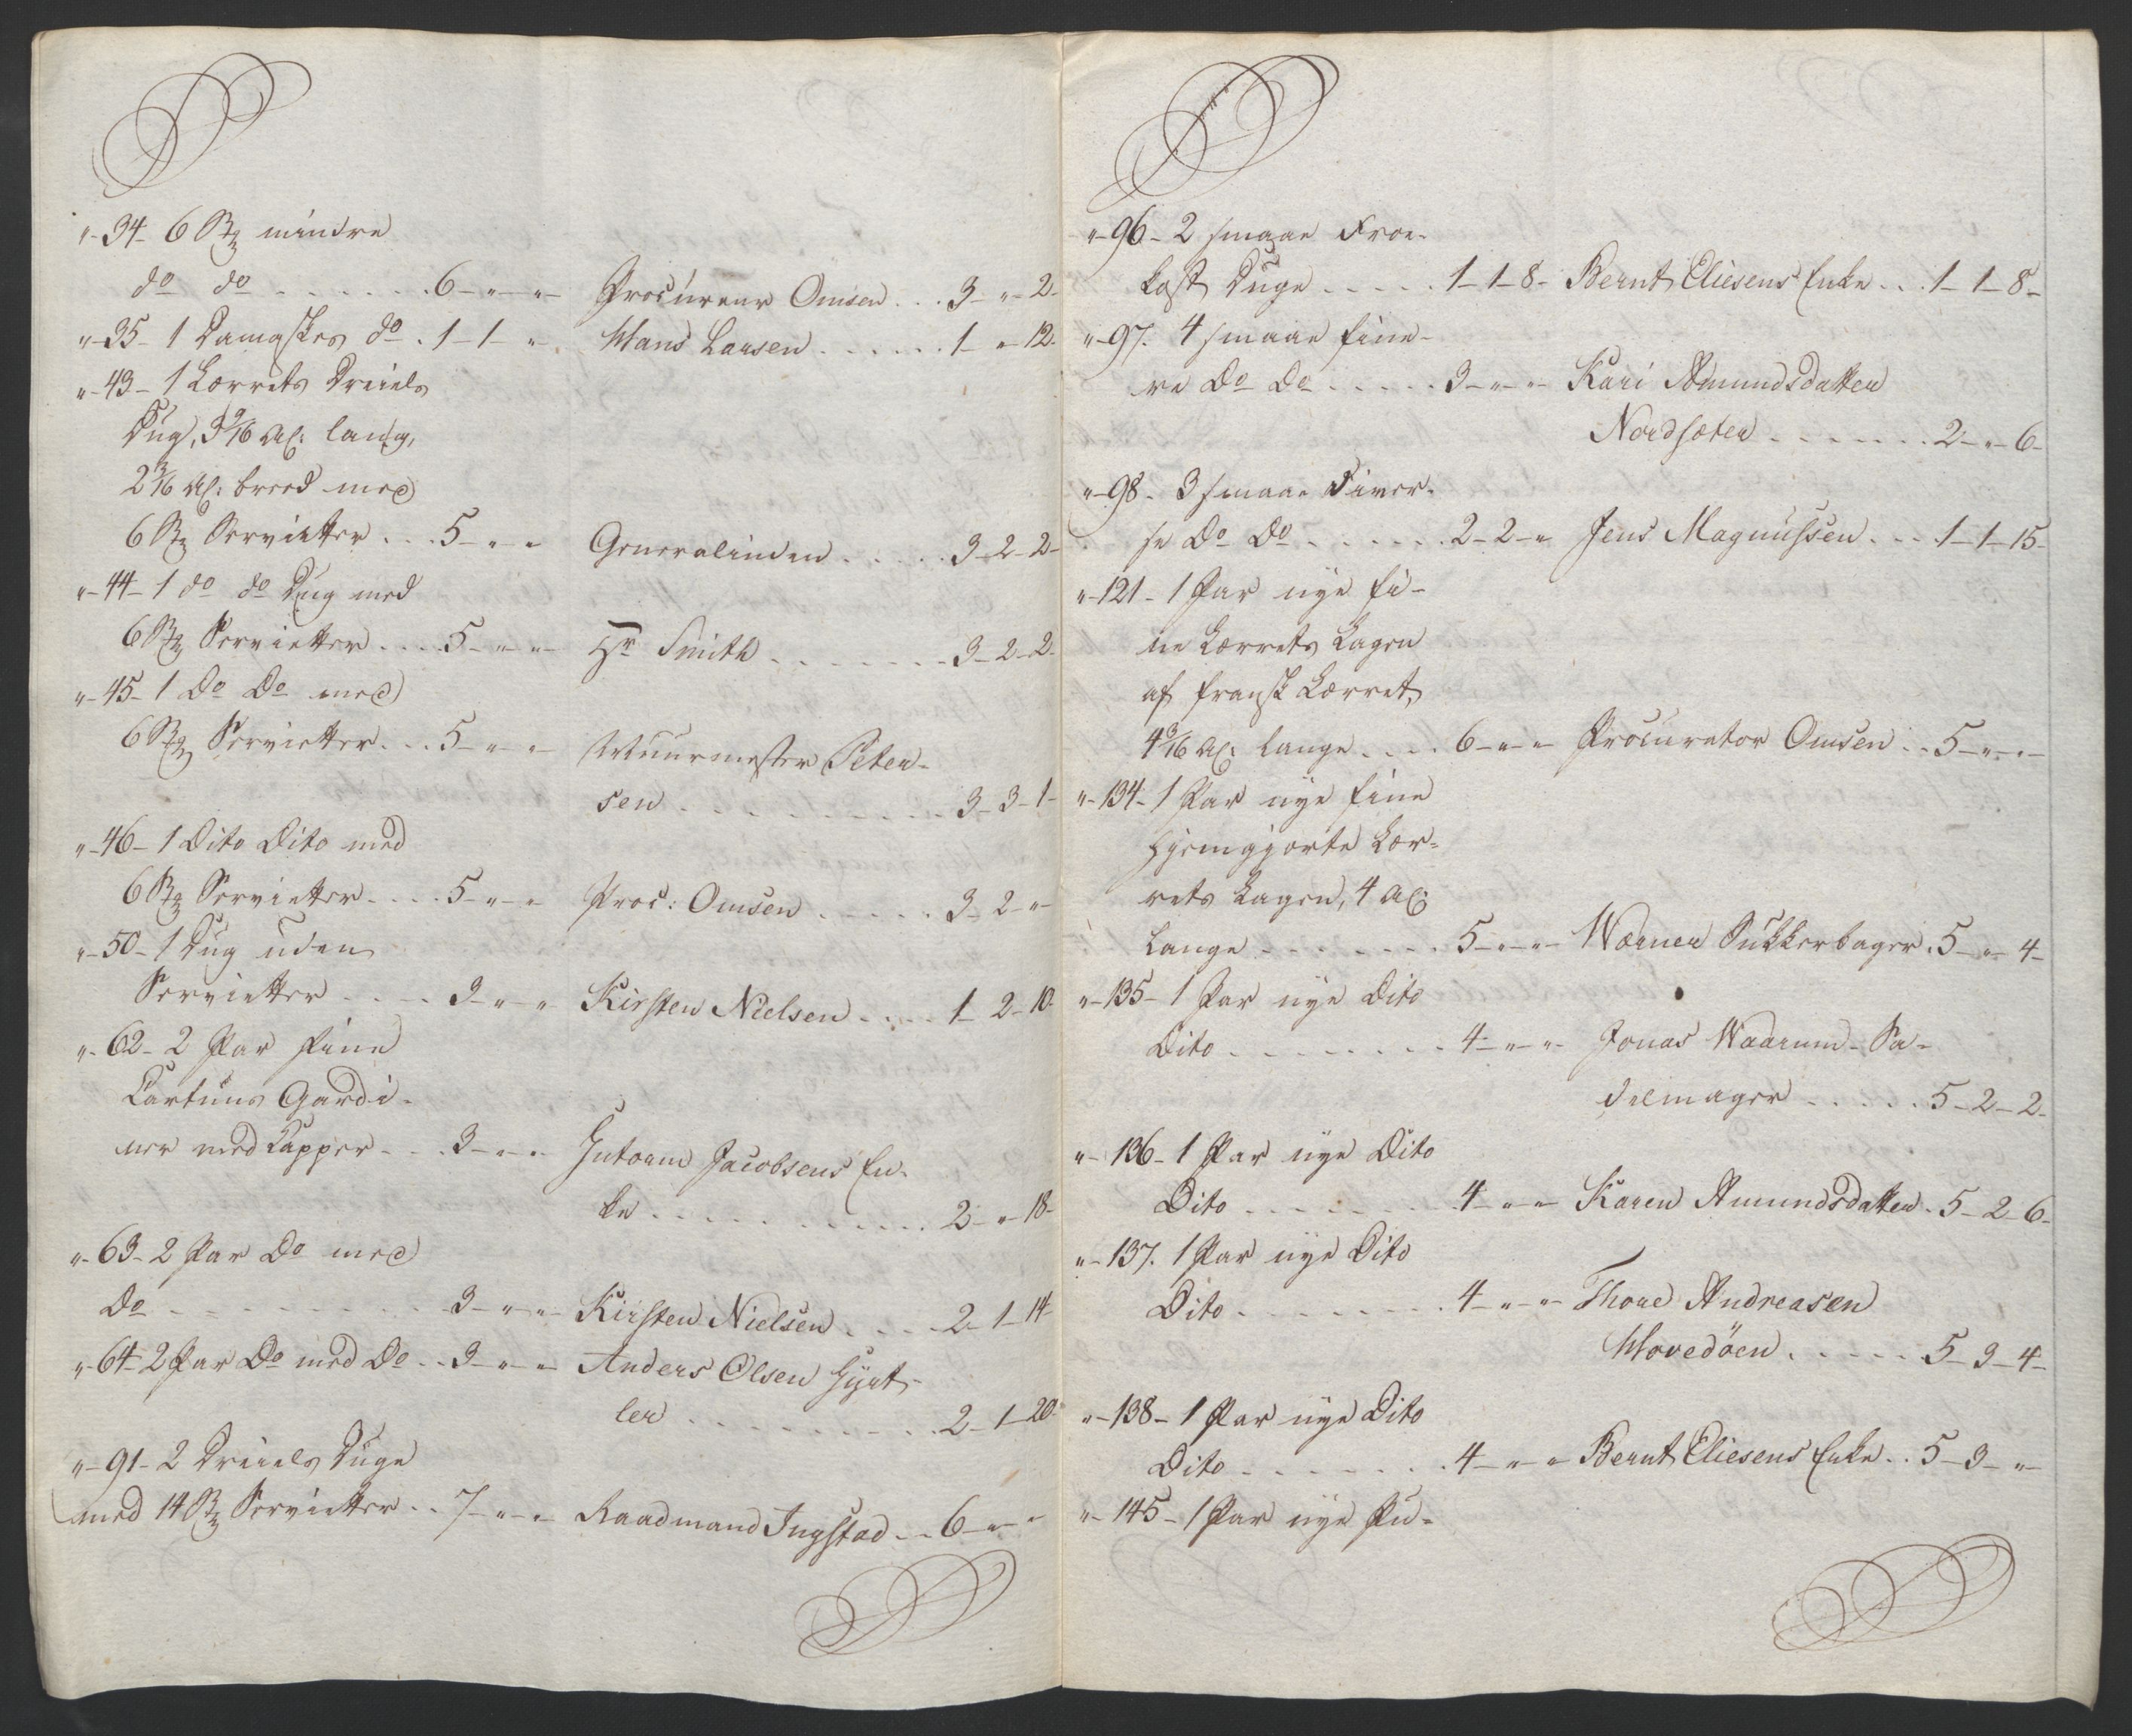 "-34- 6 Stz mindre
do do . . . . . . 6-"-"- Procureur Omsen . . 3-"-2-
"-35- 1 Damaskes do . 1-1-" Hans Larsen . . . . . . 1-"-12-
"-43- 1 Lærrets Dreiels
Dug, 3 9/16 Al: lang,
2 3/16 Al: breed med
6 Stz Servietter . . . 5-"-" Generalinden . . . . . 3-2-2-
"-44- 1 do do Dug med
6 Stz Servietter . . . . 5-"-"- Hr Smith . . . . . . . 3-2-2-
"-45- 1 Do Do med
6 Stz Servietter . . . 5-"-"- Muurmester Peter-
sen . . . . . . . . . . 3-3-1-
"-46- 1 Dito Dito med
6 Stz Servietter . . . . 5-"-" Proc: Omsen . . . . . 3-2-"-
"-50- 1 Dug uden
Servietter . . . . 3-"-" Kirsten Nielsen . . . . 1-2-10-
"-62- 2 Par fine
Cartuns Gardi-
ner med Kapper - . . 3-"-" Gutorm Jacobsens En-
ke . . . . . . . . . . . 2-"-18-
"-63- 2 Par Do med
Do . . . . . . . . . . 3-"-"- Kirsten Nielsen . . . . 2-1-14-
"-64- 2 Par Do med Do . . 3-"-"- Anders Olsen Gjört-
ler . . . . . . . . . . 2-1-20-
"-91- 2 Dreiels Duge
med 14 Stz Servietter . . 7-"-" Raadmand Ingstad . . 6-"-"
"-96- 2 smaae Froe-
kost Duge . . . . . 1-1-8- Bernt Eliesens Enke . . . 1-1-8-
"-97. 4 smaae fine-
re Do Do . . . . . 3-"-"- Kari Amundsdatter
Nordsæter . . . . . . . 2-"-6-
"-98- 3 smaae diver-
se Do Do . . . . . . 2-2-" Jens Magnussen . . . 1-1-15-
"-121- 1 Par nye fi-
ne Lærrets Lagen
af fransk Lærret,
4 3/16 Al: lange . . . . 6-"-"- Procurator Omsen . . 5-"-"-
"-134- 1 Par nye fine
hjemgjorte Lær-
rets Lagen, 4 Al:
lange . . . . . . . . 5-"-"- Wærner Sukkerbager . 5-"-4-
"-135- 1 Par nye Dito
Dito . . . . . . . . . 4-"-"- Jonas Waarum - Sa-
delmager . . . . . 5-2-2-
"-136- 1 Par nye Dito
Dito . . . . . . . . 4-"-" Karen Amundsdatter . 5-2-6-
"-137. 1 Par nye Dito
Dito . . . . . . . . . 4-"-"- Thore Andreasen
Hovedöen . . . . . 5-3-4-
"-138- 1 Par nye Dito
Dito . . . . . . . 4-"-" Bernt Eliesens Enke . . 5-3-"-
"-145- 1 Par nye Pu-